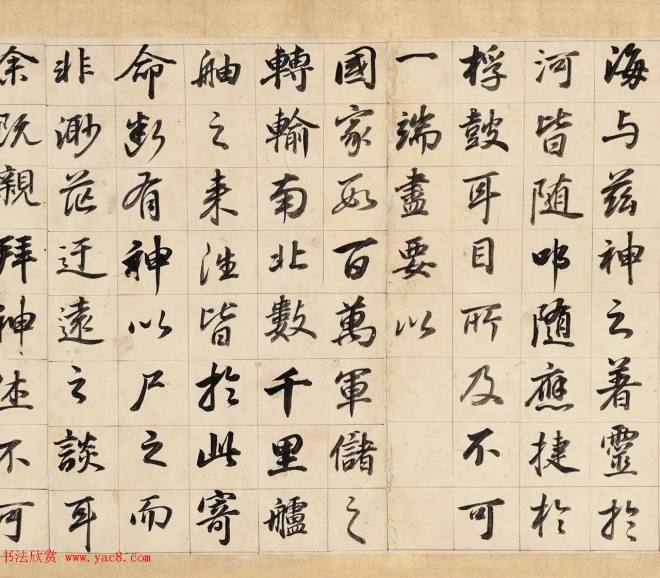 海与兹神之著靈於
河皆随叩随應捷於
桴鼓耳目所及不可
一端盡要以
國家數百萬軍儲之
轉輸南北數千里艫
舳之来往皆於此寄
命斷有神以尸之而
非渺茫迂遠之談耳
余既親拜神 不可
书法欣赏 www.yac8.com